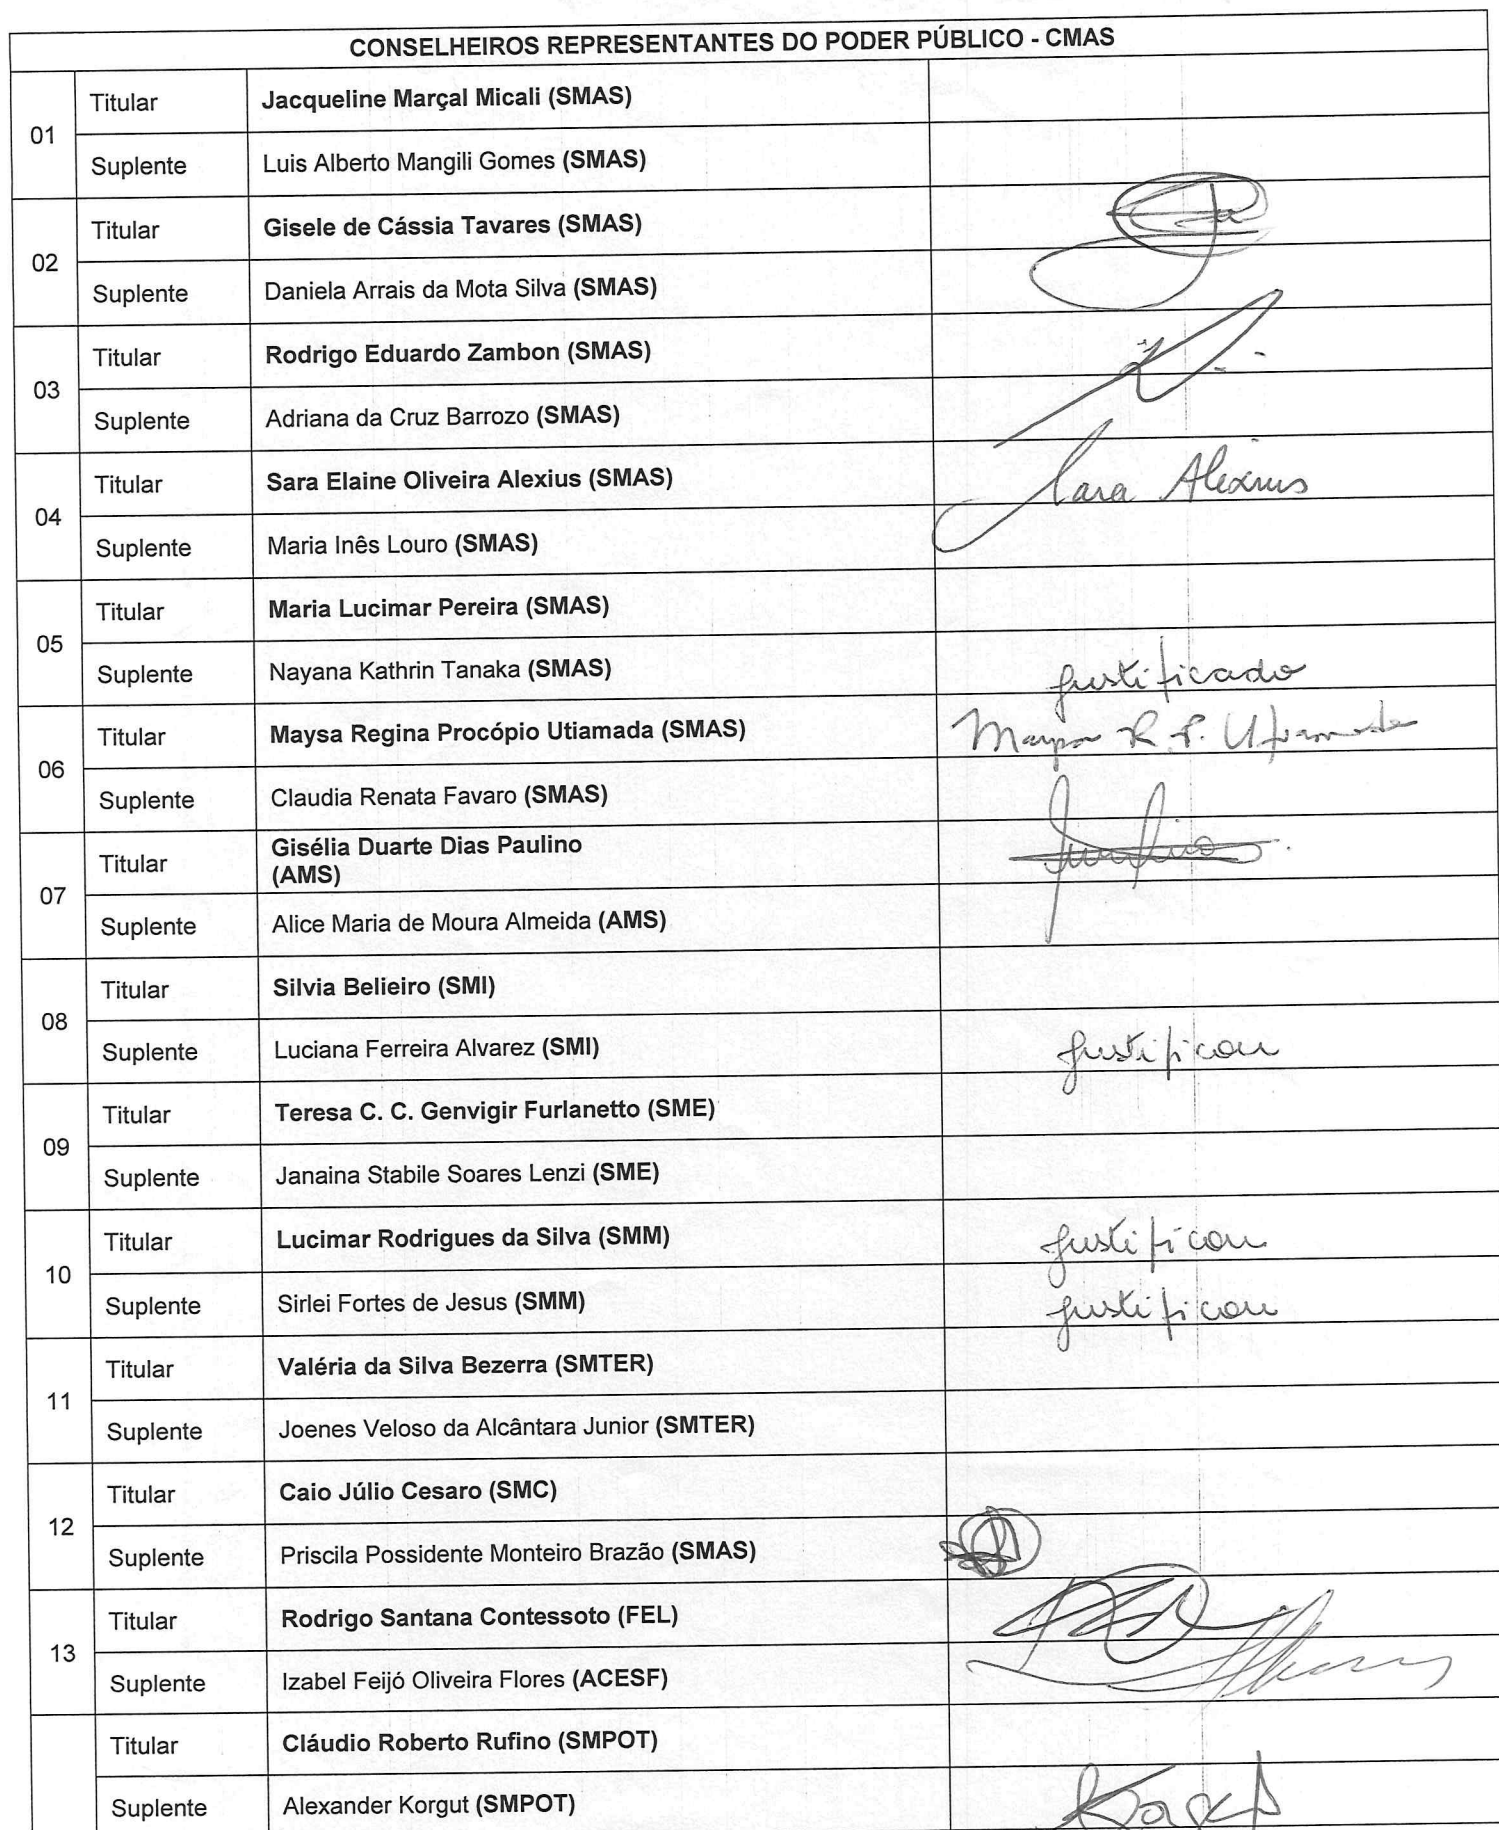 CONSELHEIROS REPRESENTANTES DO PODER PÚBLICO - CMAS
01
Titular Jacqueline Marçal Micali (SMAS)
Suplente Luis Alberto Mangili Gomes (SMAS)
02
Titular Gisele de Cássia Tavares (SMAS)
Suplente Daniela Arrais da Mota Silva (SMAS)
03
Titular Rodrigo Eduardo Zambon (SMAS)
Suplente Adriana da Cruz Barrozo (SMAS)
04
Titular Sara Elaine Oliveira Alexius (SMAS) Sara Alexius
Suplente Maria Inês Louro (SMAS)
05
Titular Maria Lucimar Pereira (SMAS)
Suplente Nayana Kathrin Tanaka (SMAS) justificado
06
Titular Maysa Regina Procópio Utiamada (SMAS) Maysa R. P. Utiamada
Suplente Claudia Renata Favaro (SMAS)
07
Titular Gisélia Duarte Dias Paulino
(AMS)
Suplente Alice Maria de Moura Almeida (AMS)
08
Titular Silvia Belieiro (SMI)
Suplente Luciana Ferreira Alvarez (SMI) justificou
09
Titular Teresa C. C. Genvigir Furlanetto (SME)
Suplente Janaina Stabile Soares Lenzi (SME)
10
Titular Lucimar Rodrigues da Silva (SMM) justificou
Suplente Sirlei Fortes de Jesus (SMM) justificou
11
Titular Valéria da Silva Bezerra (SMTER)
Suplente Joenes Veloso da Alcântara Junior (SMTER)
12
Titular Caio Júlio Cesaro (SMC)
Suplente Priscila Possidente Monteiro Brazão (SMAS)
13
Titular Rodrigo Santana Contessoto (FEL)
Suplente Izabel Feijó Oliveira Flores (ACESF)
Titular Cláudio Roberto Rufino (SMPOT)
Suplente Alexander Korgut (SMPOT)